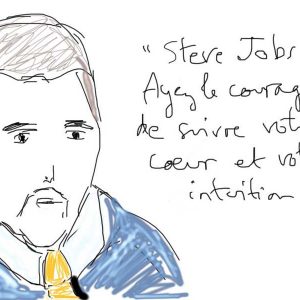 " Steve Jobs
Ayez le courag
de suivre vot
cœur et vot
intuition